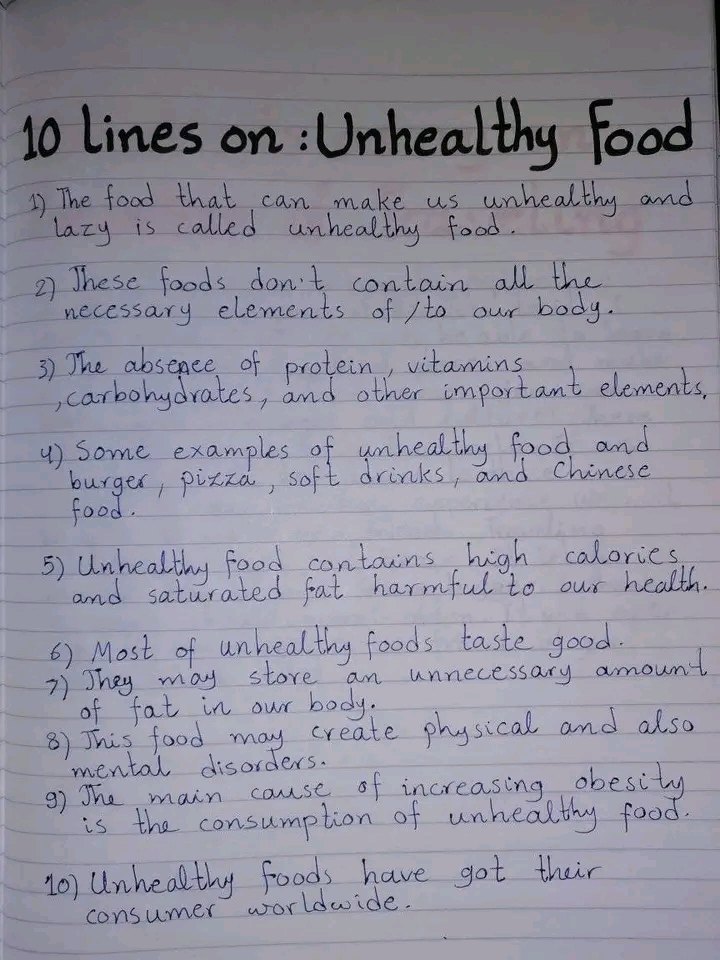 10 lines on : Unhealthy Food
1) The food that can make us unhealthy and
lazy is called unhealthy food.
2) These foods don't contain all the
necessary elements of /to our body.
3) The absence of protein, vitamins
,carbohydrates, and other important elements,
4) Some examples of unhealthy food and
burger, pizza, soft drinks, and Chinese
food.
5) Unhealthy food contains high calories
and saturated fat harmful to our health.
6) Most of unhealthy foods taste good.
7) They may store an unnecessary amount
of fat in our body.
8) This food may create physical and also
mental disorders.
9) The main cause of increasing obesity
is the consumption of unhealthy food.
10) Unhealthy foods have got their
consumer worldwide.